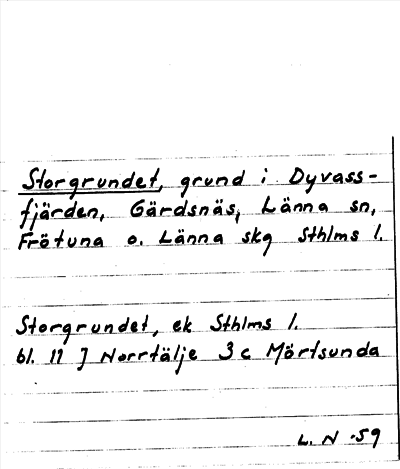 Storgrundet, grund i Dyvass-
fjärden, Gärdsnäs, Länna sn,
Frötuna o. Länna skg Sthlms l.
Storgrundet, ek Sthlms l.
bl. 11 J Norrtälje 3c Mörtsunda
L. N -59